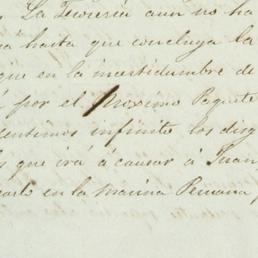 La Tesoreria aun no ha
va hasta que concluya la
que en la incertidumbre de
por el Proximo Paquete
sentimos infinito los disg
que irá á causar á Juan
en la Marina Peruana